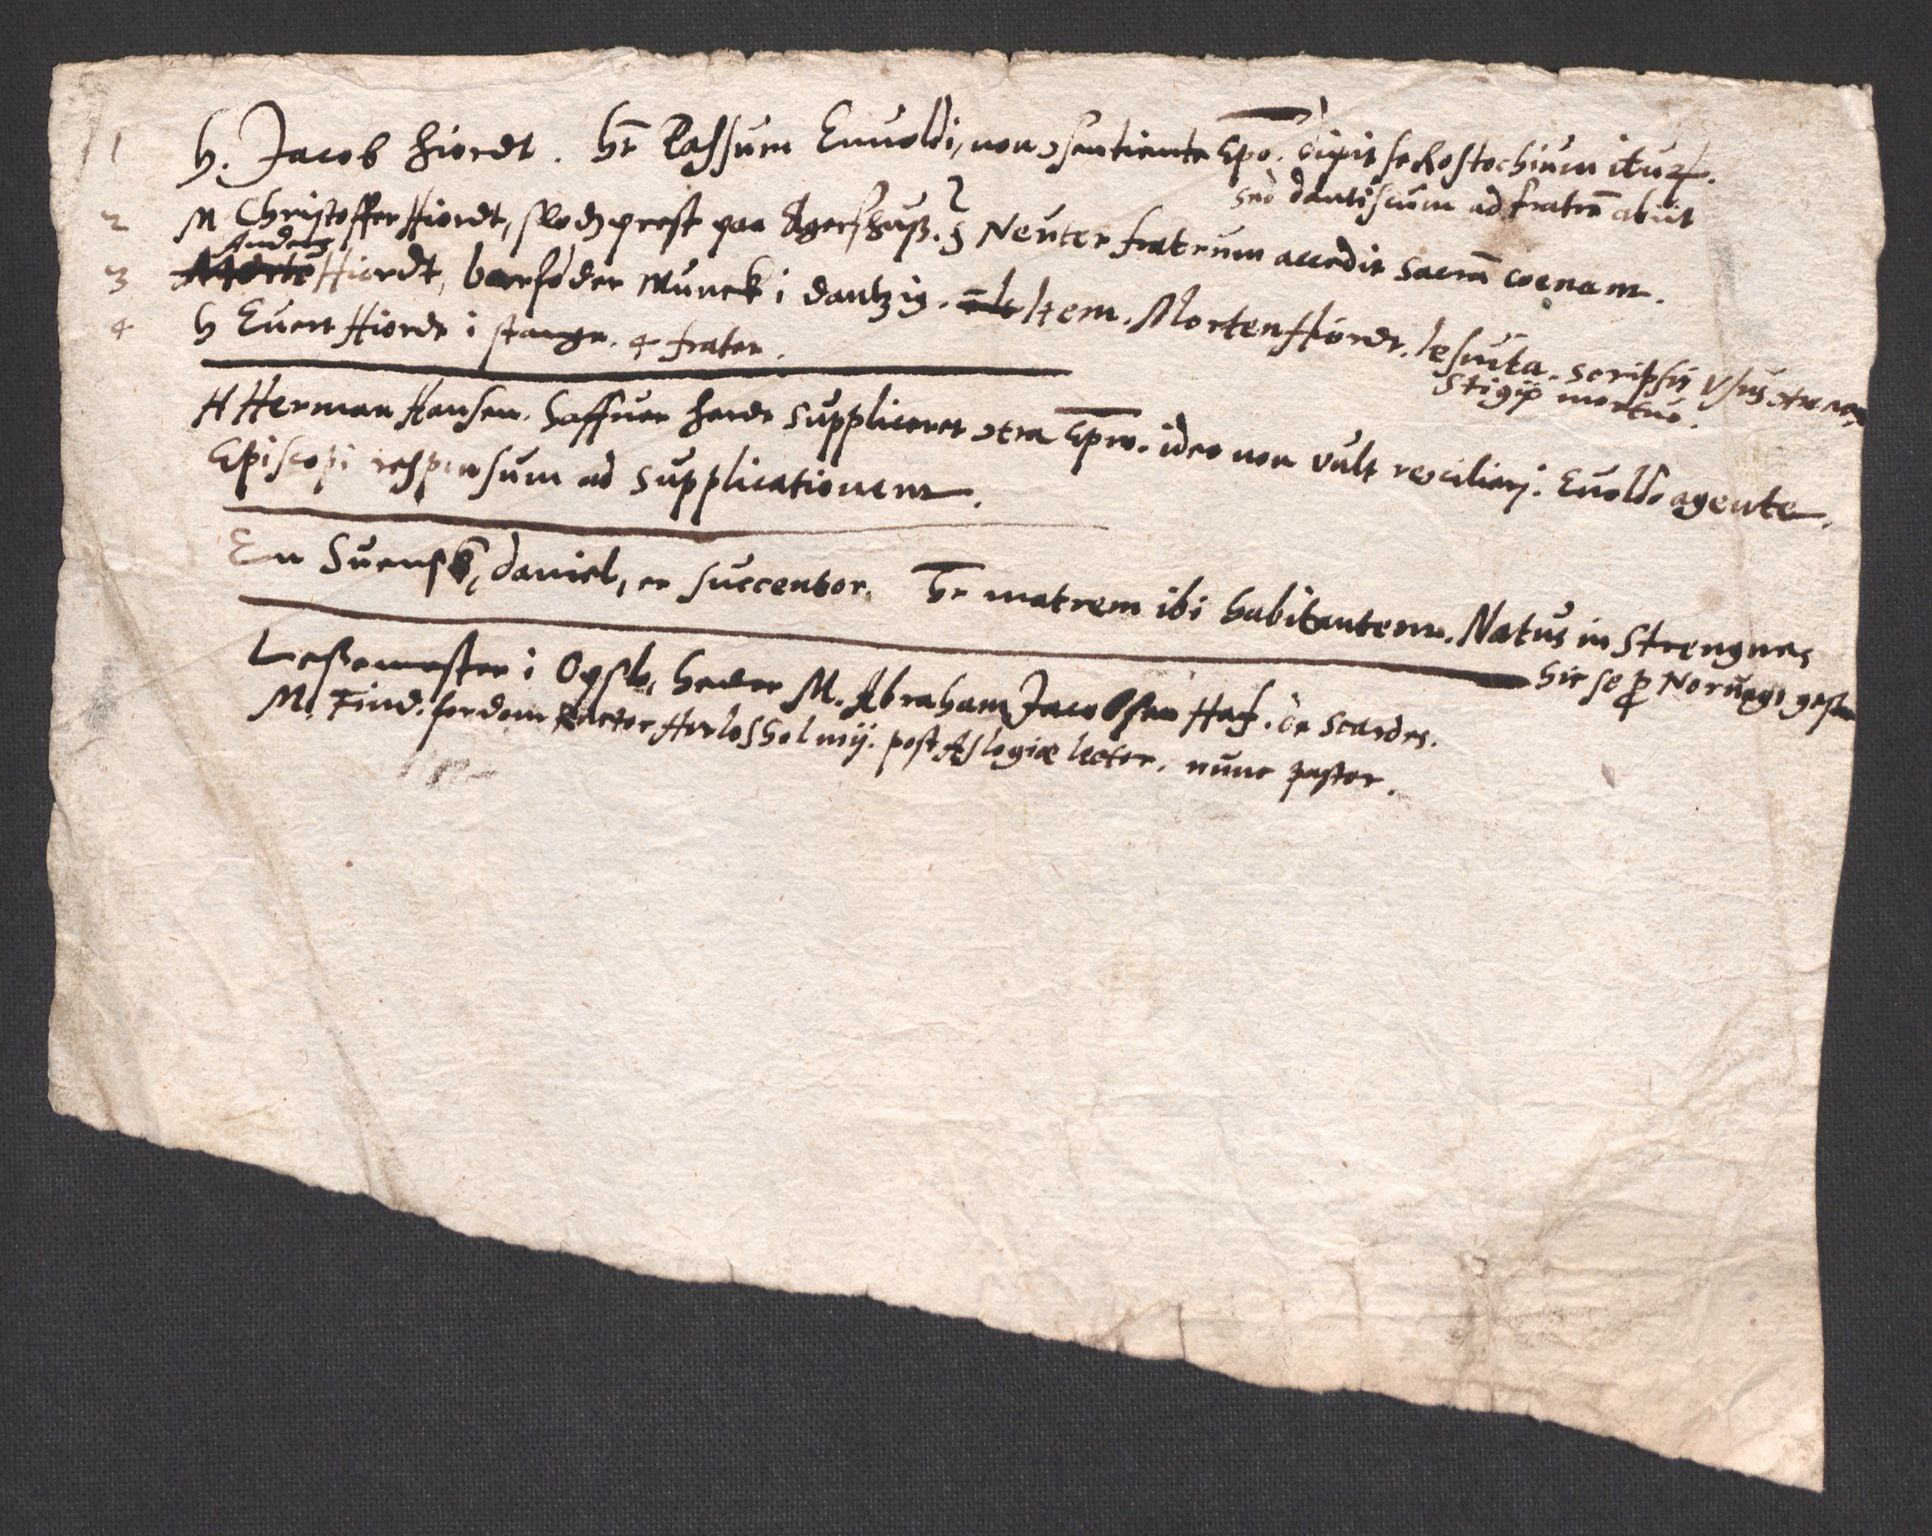 1 H. Jacob Hiordt. hr Passum Enuoldi, non ↄsentiente Epo. dixit se Rostochium itur.
sed dantiscum ad fratrē abiit
2 M Christoffer Hiordt, slodtz prest paa Agerszhusz. § Neuter fratrum accedit sacrā coenam.
Anders
3 Hiordt, barfoder Munck i dantzig. Item. Morten Hiordt. Iesuita. scripsit
Stigij mortuo.
4 H Euert Hiordt i stange. 4 frater.
H Herman Hansen. haffuer hørdt suppliceret ↄtra Epm. ideo non vult reↄciliarj. Euoldo agente.
Episcopi responsum ad supplicationem.
En Suensk, daniel, er succentor. hr matrem ibi habitantem. Natus in Strengnes
hic se p Noruego
Lesemester i Opslo, heder M. Abraham Jacobsen Haf. de Scardes.
M. Find. fordom Rector Herlosholmij. post Aslogiæ lector. nunc pastor.